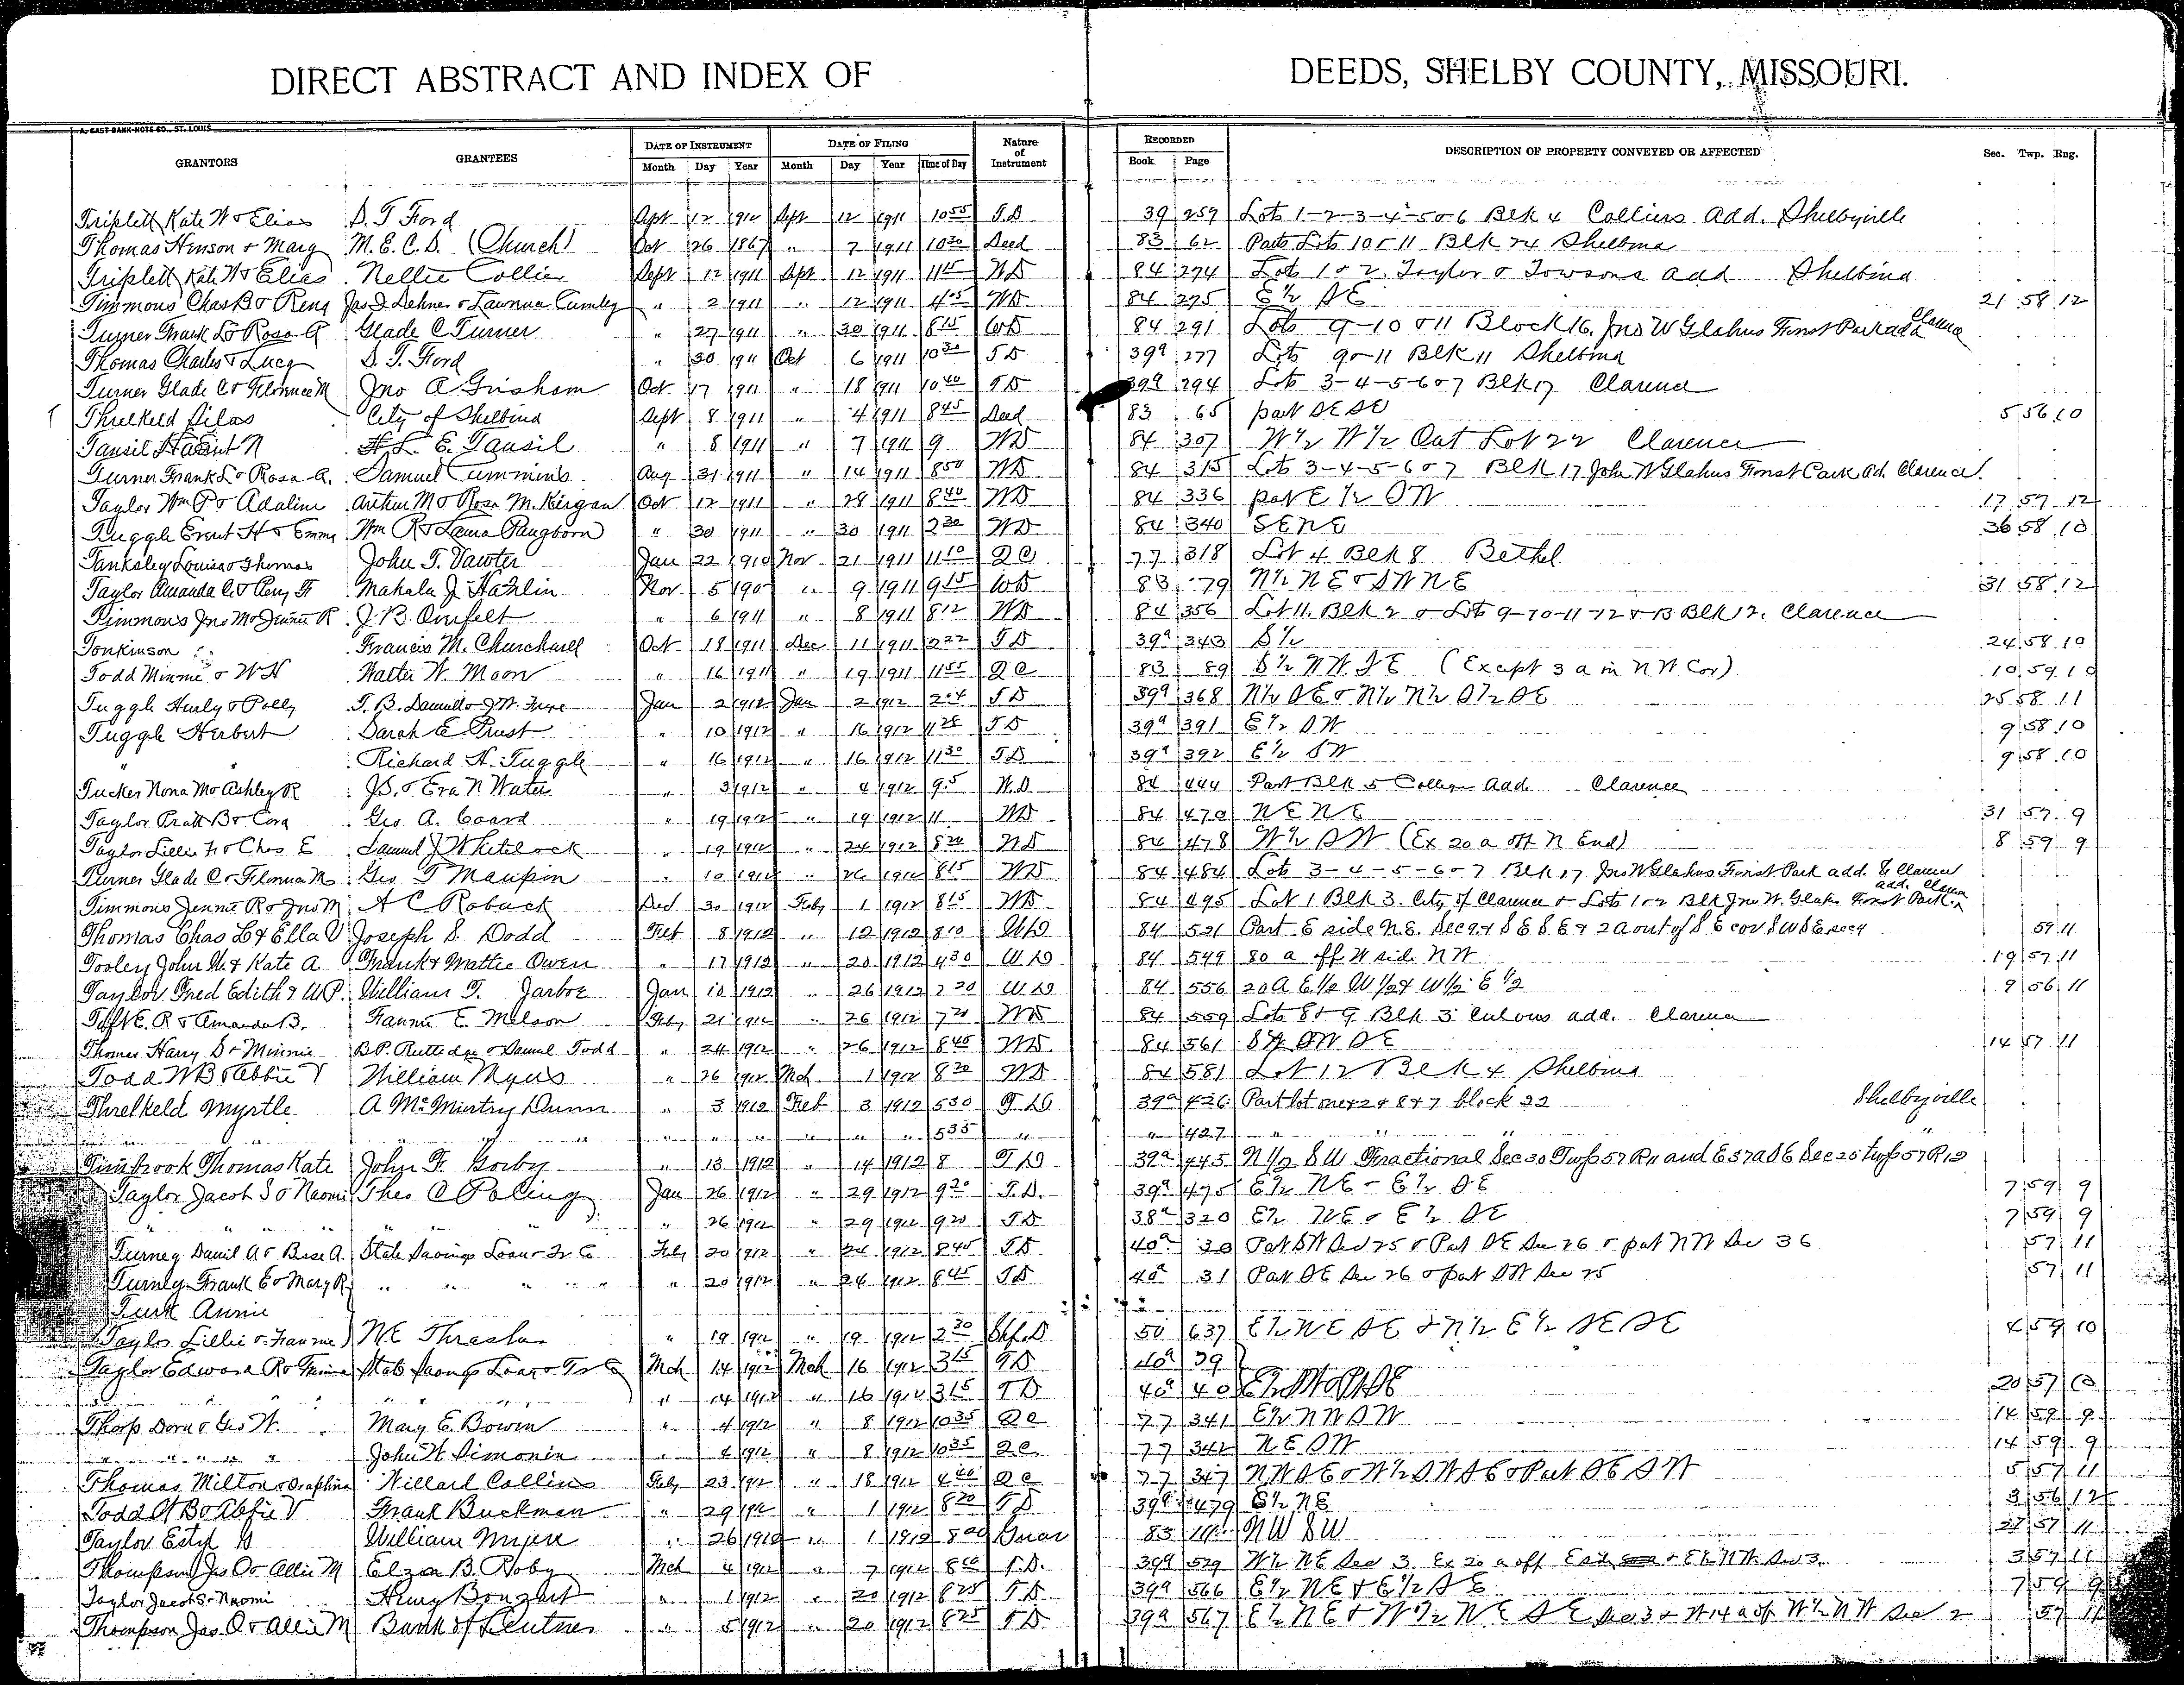 DIRECT ABSTRACT AND INDEX OF DEEDS, SHELBY COUNTY, MISSOURI.
A. GAST BANK NOTE CO., ST. LOUIS
GRANTORS GRANTEES DATE OF INSTRUMENT DATE OF FILING Nature of Instrument RECORDED DESCRIPTION OF PROPERTY CONVEYED OR AFFECTED Sec. Twp. Rng.
Month Day Year Month Day Year Time of Day Book Page
Triplett Kate W & Elias D. T Ford Sept 12 1911 Sept 12 1911 10 55 T.D 39 259 Lots 1-2-3-4-5 & 6 Blk 4 Collins Add. Shelbyville
Thomas Hinson & Mary M. E. C. S. (Church) Oct 26 1867 " 7 1911 10 30 Deed 83 62 Parts Lots 10 & 11 Blk 24 Shelbina
Triplett Kate W & Elias Nellie Collier Sept 12 1911 Sept 12 1911 11 15 WD 84 274 Lots 1 & 2 Taylor & Towsons add Shelbina
Timmons Chas B & Rena Jas J. Dehner & Laurina Cumley " 2 1911 " 12 1911 4 05 WD 84 275 E½ SE 21 58 12
Turner Frank L & Rosa A Glade C Turner " 27 1911 " 30 1911 8 15 WD 84 291 Lots 9-10 & 11 Block 16. Jno W Glahns Forest Park add Clarence
Thomas Charles & Lucy D. T. Ford " 30 1911 Oct 6 1911 10 30 TD 39a 277 Lots 9 & 11 Blk 11 Shelbina
Turner Glade C & Florence M Jno A Grisham Oct 17 1911 " 18 1911 10 40 TD 39a 294 Lots 3-4-5-6 & 7 Blk 17 Clarence
Threlkeld Silas City of Shelbina Sept 8 1911 " 4 1911 8 45 Deed 83 65 part SE SE 5 56 10
Tansil N H. L. E. Tansil " 8 1911 " 7 1911 9 WD 84 307 W½ W½ Out Lot 22 Clarence
Turner Frank L & Rosa A. Samuel Cummins Aug 31 1911 " 14 1911 8 50 WD 84 315 Lots 3-4-5-6 & 7 Blk 17 John W Glahns Forest Park ad. Clarence
Taylor Wm P & Adaline Arthur M & Rosa M. Kirgan Oct 12 1911 " 28 1911 8 40 WD 84 336 part E½ SW 17 59 12
Tuggle Ernest H & Emma Wm R & Laura Pangborn " 30 1911 " 30 1911 2 30 WD 84 340 SENE 36 58 10
Tanksley Louisa & Thomas John T. Vawter Jan 22 1910 Nov 21 1911 11 10 QC 77 318 Lot 4 Blk 8 Bethel
Taylor Amanda C & Mahala J. Hamlin Nov 5 190 " 9 1911 9 15 WD 83 79 N½ NE & SW NE 31 58 12
Timmons Jno M & Jennie R J. B. " 6 1911 " 8 1911 8 12 WD 84 356 Lot 11. Blk 2 & Lots 9-10-11-12 & 13 Blk 12. Clarence
Tonkinson Francis M. Churchwell Oct 18 1911 Dec 11 1911 2 22 TD 39a 343 S½ 24 58 10
Todd Minnie & W H Walter W. Moon " 16 1911 " 19 1911 11 55 QC 83 89 S½ NW SE (Except 3 a in NW Cor) 10 59 10
Tuggle Huly & Polly T. B. Jan 2 1912 Jan 2 1912 2 04 TD 39a 368 N½ SE & N½ N½ S½ SE 25 58 11
Tuggle Herbert Sarah E Priest " 10 1912 " 16 1912 11 28 TD 39a 391 E½ SW 9 58 10
" Richard H. Tuggle " 16 1912 " 16 1912 11 30 TD 39a 392 E½ SW 9 58 10
Tucker Nona M & Ashley R J.S. & Era N Water " 3 1912 " 4 1912 9 5 W.D 84 444 Part Blk 5 College Add Clarence
Taylor Pratt B & Cora Geo A. Coard " 19 1912 " 19 1912 11 WD 84 470 NENE 31 57 9
Taylor Lillie F & Chas E Samuel J Whitelock " 19 1912 " 24 1912 8 20 WD 84 478 W½ SW (Ex 20 a off N End) 8 59 9
Turner Glade C & Florence M Geo T Maupin " 10 1912 " 26 1912 8 15 WD 84 484 Lots 3-4-5-6 & 7 Blk 17 Jno W Glahns Forest Park add. to Clarence
Timmons Jennie R & Jno M A C Robuck Dec 30 1912 Feby 1 1912 8 15 WD 84 495 Lot 1 Blk 3 City of Clarence & Lots 1 & 2 Blk Jno W. Glahns Forest Park add. Clarence
Thomas Chas L & Ella V Joseph S. Dodd Feb 8 1912 " 12 1912 8 10 WD 84 521 Part E side N.E. Sec 9 & S E S E & 2a out of S E cor S W S E sec 4 59 11
Tooley John W. & Kate A. Frank & Mattie Owen " 17 1912 " 20 1912 4 30 WD 84 549 80 a off W side NW 19 57 11
Taylor Fred Edith & W P. William T. Jarboe Jan 10 1912 " 26 1912 7 20 WD 84 556 20 A E½ W½ & W½ E½ 9 56 11
R & Amanda B. Fannie E. Melson Feby 21 1912 " 26 1912 7 20 WD 84 559 Lots 8 & 9 Blk 3 add. Clarence
Thomas Harry D & Minnie B.P. Rutledge & Daniel Todd " 24 1912 " 26 1912 8 45 WD 84 561 S½ SW SE 14 57 11
Todd W B & Abbie V William Myers " 26 1912 Mch 1 1912 8 20 WD 84 581 Lot 12 Blk 4 Shelbina
Threlkeld Myrtle A Mc Mintry Dunn " 3 1912 Feb 3 1912 5 30 T. D 39a 426 Part lot one & 2 & 8 & 7 block 22 Shelbyville
" " " " " " 5 35 " " 427 " " " "
Timbrook Thomas Kate John F. Gorby " 13 1912 " 14 1912 8 T.D 39a 445 N½ S W Fractional Sec 30 Twp 57 R 11 and E 37a S E Sec 25 twp 57 R 12
Taylor Jacob S & Naomi Theo C Poling Jan 26 1912 " 29 1912 9 20 T.D. 39a 475 E½ NE - E½ SE 7 59 9
" " " " " 26 1912 " 29 1912 9 20 TD 38a 320 E½ NE & E½ SE 7 59 9
Turney Daniel A & Bess A. State Savings Loan & Tr Co Feby 20 1912 " 24 1912 8 45 TD 40a 30 Part SW Sec 25 & Part SE Sec 26 & part NW Sec 36 57 11
Turney Frank E & Mary R " " " " " 20 1912 " 24 1912 8 45 TD 40a 31 Part SE Sec 26 & part SW Sec 25 57 11
Turk Annie
Taylor Lillie & Frannie N.E. Thrasher " 19 1912 " 19 1912 2 30 Shf.D 50 637 E½ NE SE & N½ E½ SE SE 4 59 10
Taylor Edward R & State Savings Loan & Tr Co Mch 14 1912 Mch 16 1912 3 15 TD 40a 39
" " " " " 14 1912 " 16 1912 3 15 TD 40a 40 20 57 10
Thorp Dora & Geo W. Mary E. Bowen " 4 1912 " 8 1912 10 35 QC 77 341 E½ NW SW 14 59 9
" " " " John W. Simonin " 4 1912 " 8 1912 10 35 QC 77 342 NE SW 14 59 9
Thomas Milton & Willard Collins Feby 23 1912 " 18 1912 4 40 QC 77 347 NW SE & W½ SW SE & Part SE SW 5 57 11
Todd W B & Abbie V Frank Buckman " 29 1912 " 1 1912 8 20 TD 39a 479 E½ NE 3 56 12
Taylor Estyl G William Myers " 26 1912 " 1 1912 8 20 Guar 83 NW SW 57 11
Thompson Jas O & Allie M Elzea B. Roby Mch 4 1912 " 7 1912 8 20 T.D. 39a 529 W½ NE Sec 3 Ex 20 a off East & E½ NW Sec 3 3 57 11
Taylor Jacob S & Naomi Henry Bonzart " 1 1912 " 20 1912 8 25 TD 39a 566 E½ NE & E½ SE 7 59 9
Thompson Jas O & Allie M Bank of Lentner " 5 1912 " 20 1912 8 25 TD 39a 567 E½ NE & W½ NE SE Sec 3 & W 14 a of W½ NW Sec 2 57 11